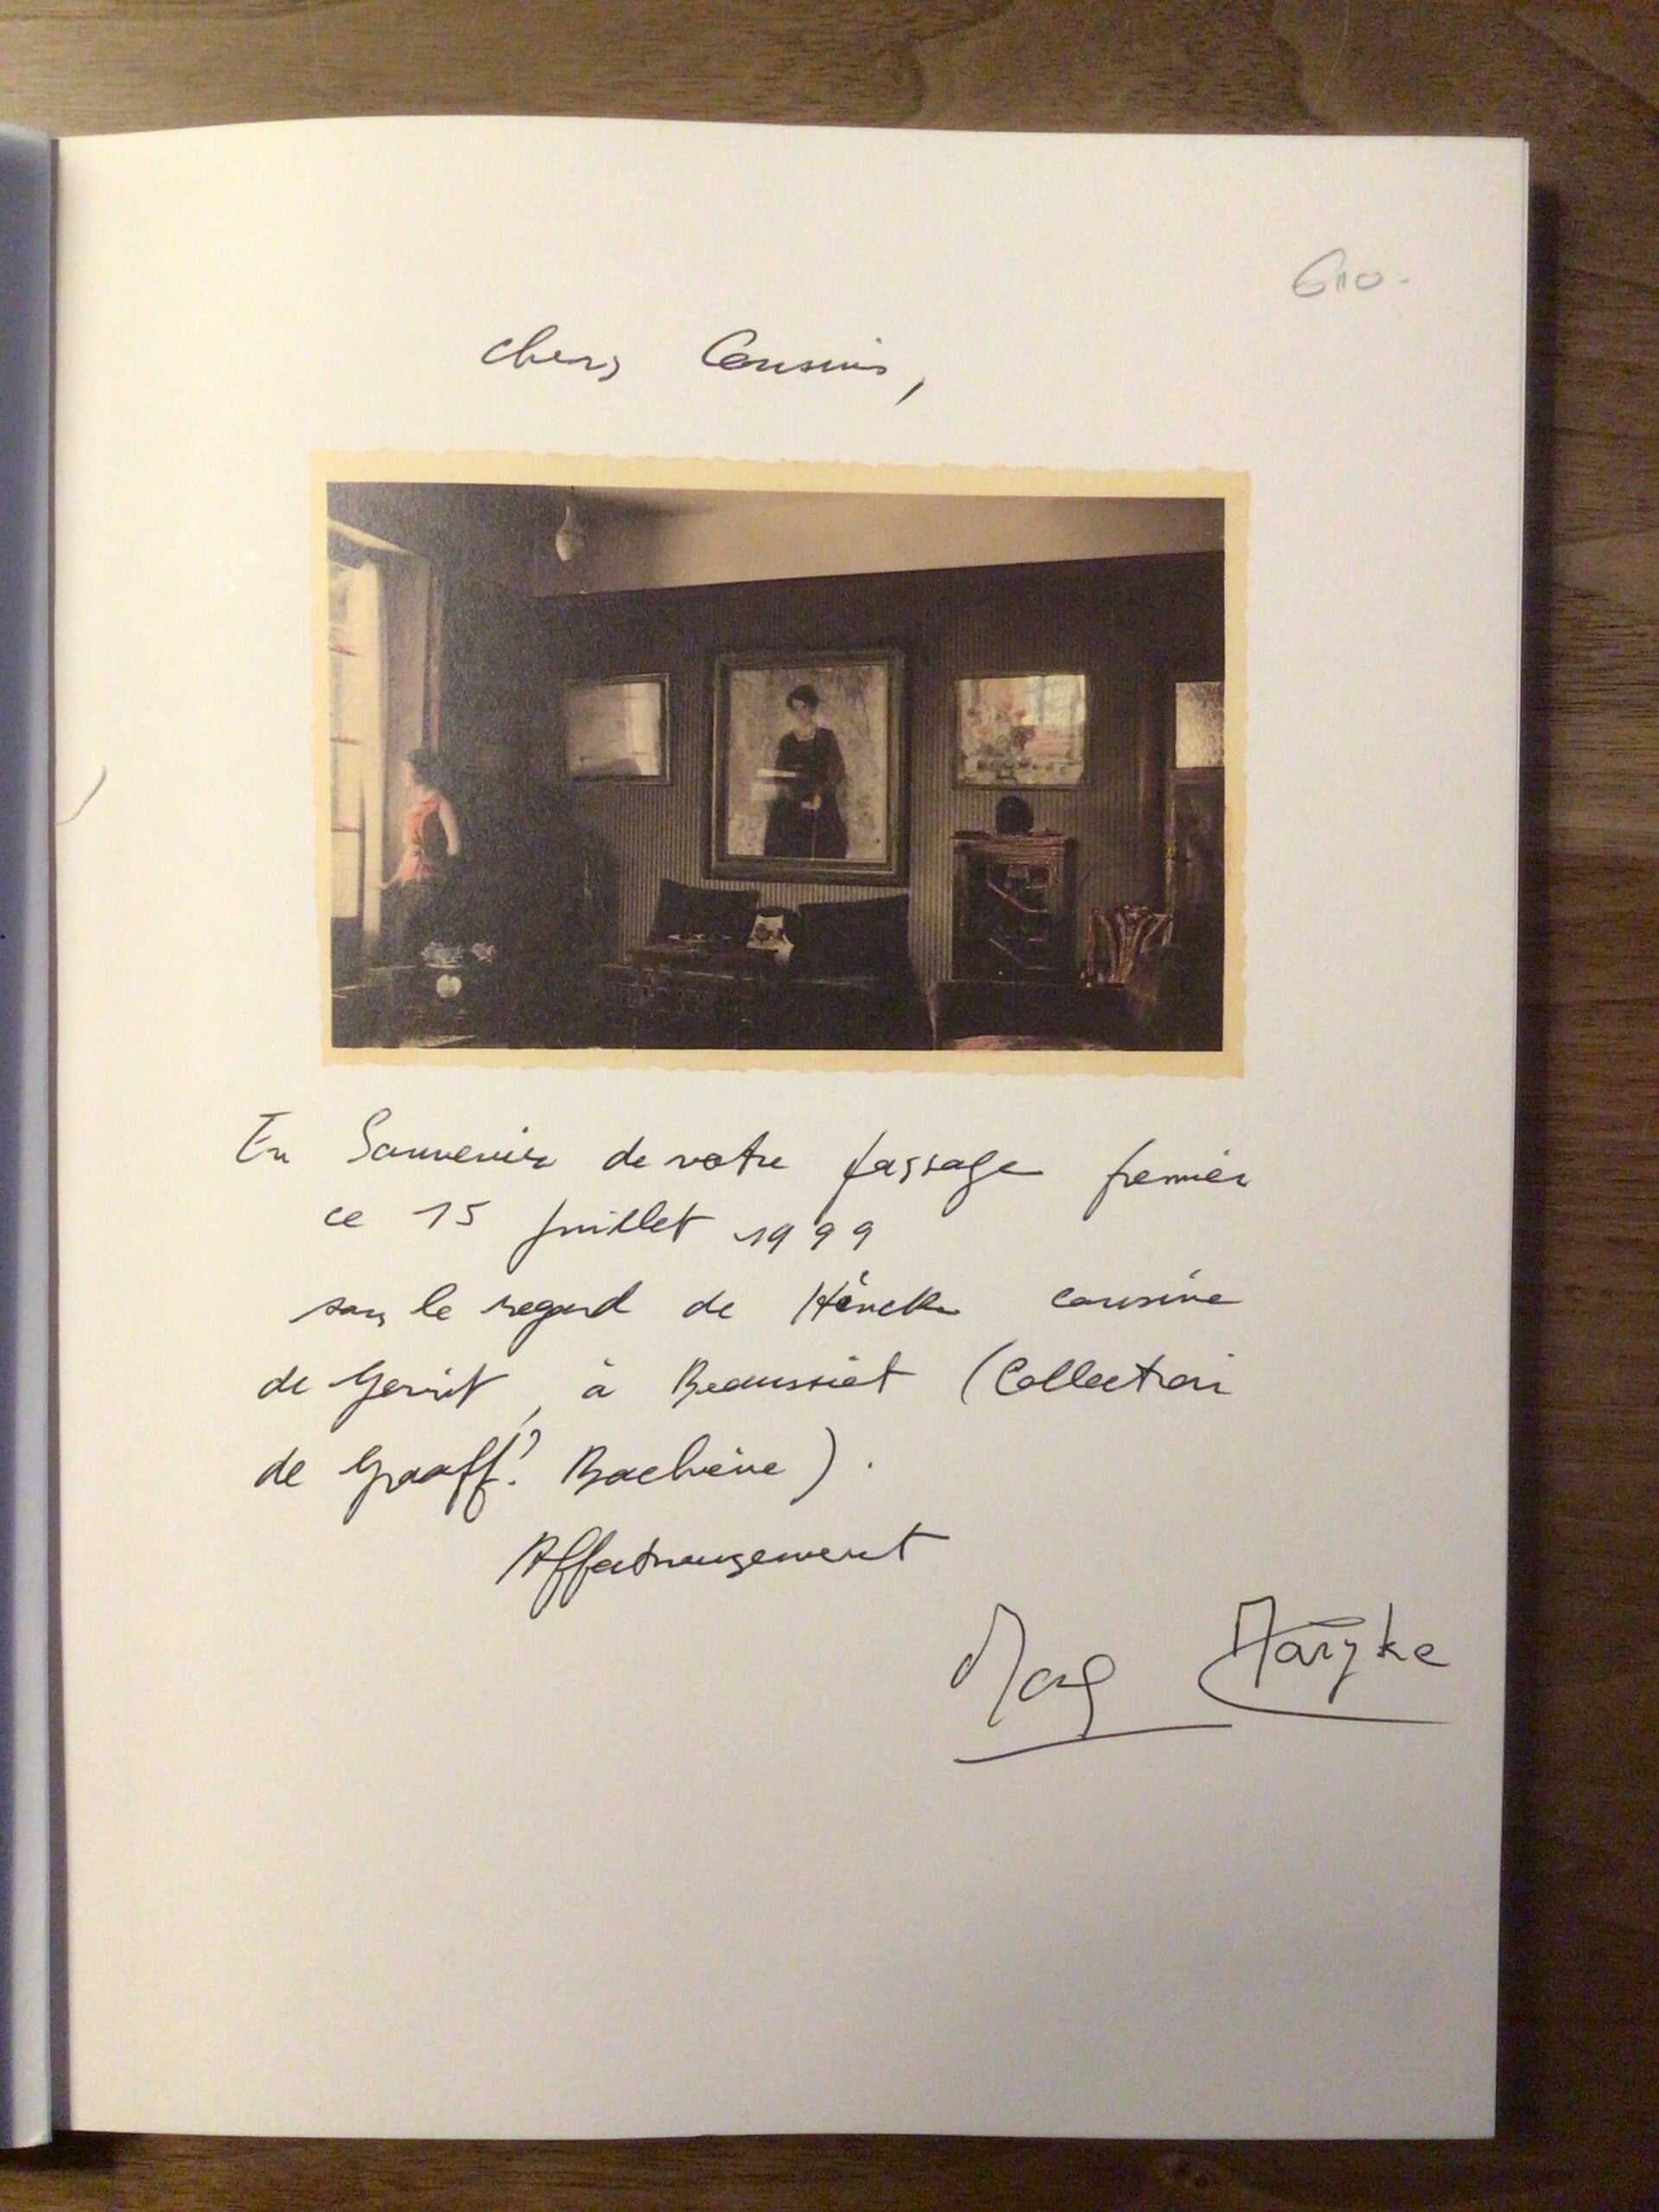 610.-
chers Cousins,
En Souvenir de votre passage premier
ce 15 juillet 1999
sous le regard de cousine
de Gerrit, à Beaussiet (Collection
de Graaff? Bachiène).
Affectueusement
Maryke